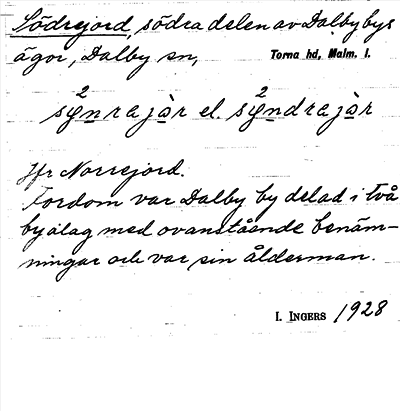 Södrejord, södra delen av Dalby bys
ägor, Dalby sn, Torna hd, Malm. l.
sy²nrajàr el. sy²ndrajàr
Jfr Norrejord.
Fordom var Dalby by delad i två
byalag med ovanstående benäm-
ningar och var sin ålderman.
I. INGERS 1928